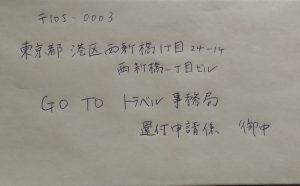 〒105-0003
東京都港区西新橋1丁目24-14
西新橋一丁目ビル
GO TO トラベル事務局
還付申請係 御中